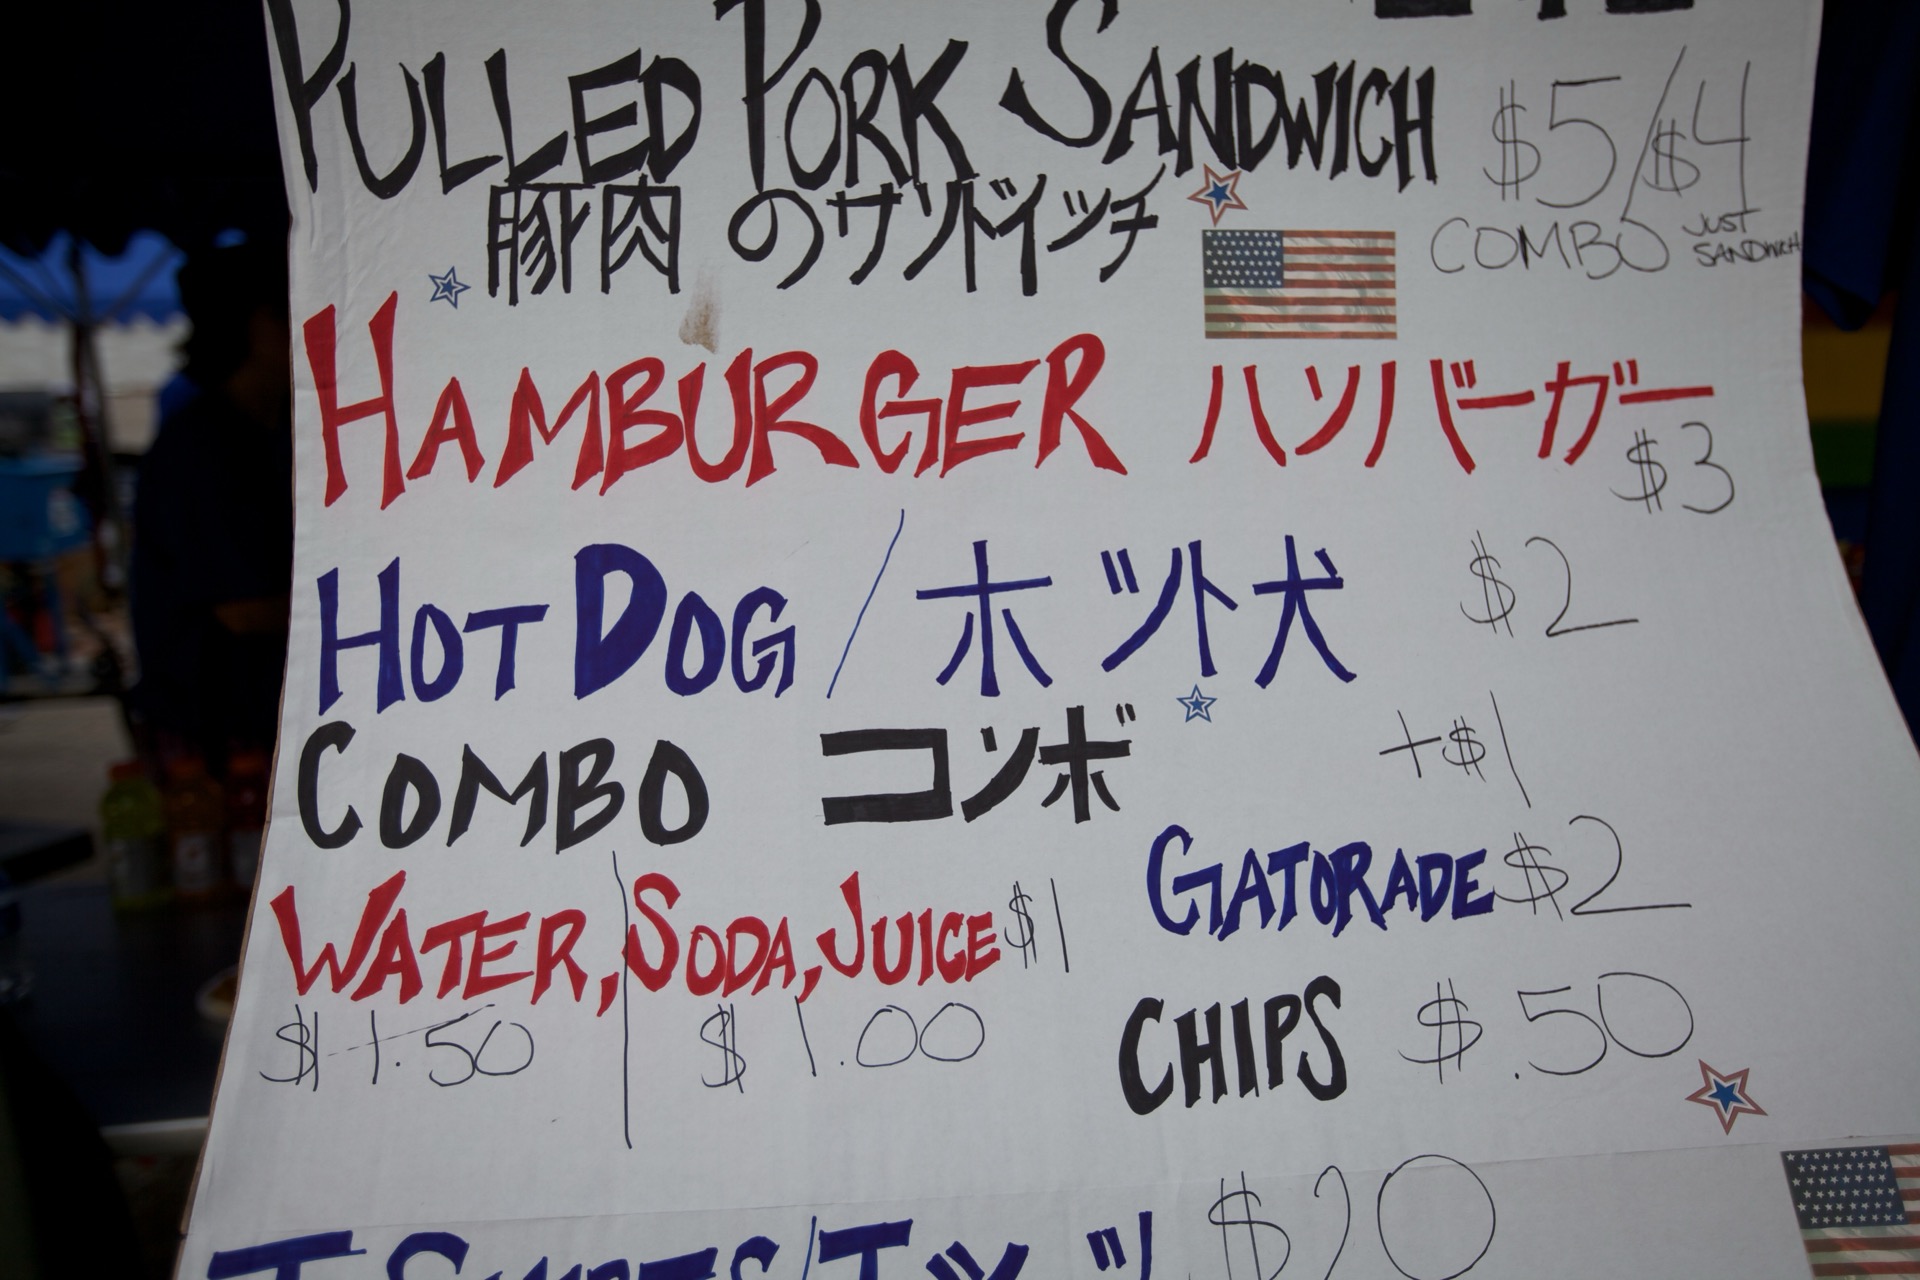 PULLED PORK SANDWICH $5/$4
豚肉のサンドイッチ COMBO JUST SANDWICH
HAMBURGER ハンバーガー
$3
HOT DOG / ホット犬 $2
COMBO コンボ +$1
WATER, SODA, JUICE $1 GATORADE $2
$1.50 $1.00 CHIPS $.50
T-SHIRTS/Tシャツ $20